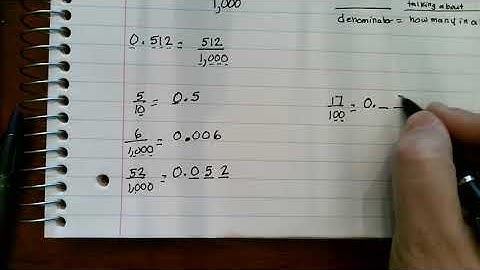 1,000
talking about
denominator = how many in a
0.512 = 512/1,000
5/10 = 0.5
17/100 = 0._ _
6/1,000 = 0.006
52/1,000 = 0.052